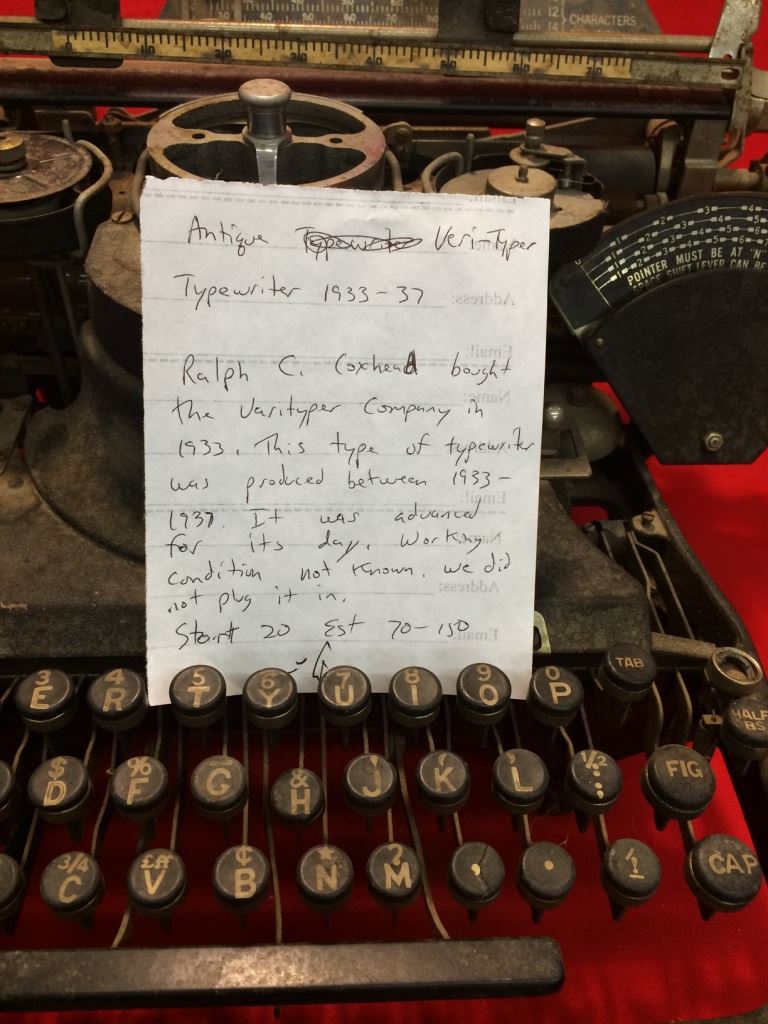 10 70
12
14
CHARACTERS
POINTER MUST BE AT "N"
SPACE SHIFT LEVER CAN BE
Antique VeriTyper
Typewriter 1933-37
Ralph C. Coxhead bought
the Varityper Company in
1933. This type of typewriter
was produced between 1933-
1937. It was advanced
for its day. Working
condition not known. we did
not plug it in.
Start 20 Est 70-150
Address:
Email:
Name:
Email:
Address:
Email:
3 E 4 R 5 T 6 Y 7 U 8 I 9 O 0 P TAB
HALF BS
$ D % F G & H J K L 1/2 : FIG
3/4 C V ¢ B * N ? M , . CAP